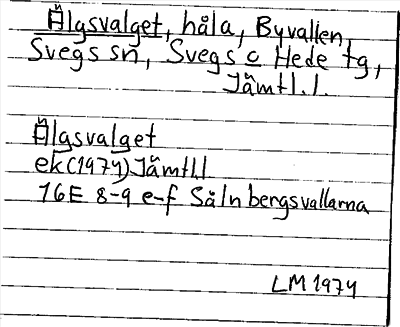 Älgsvalget, håla, Byvallen,
Svegs sn, Svegs o Hede tg,
Jämtl.l.
Älgsvalget
ek(1974)Jämtl.l
16E 8-9 e-f Sålnbergsvallarna
LM 1974